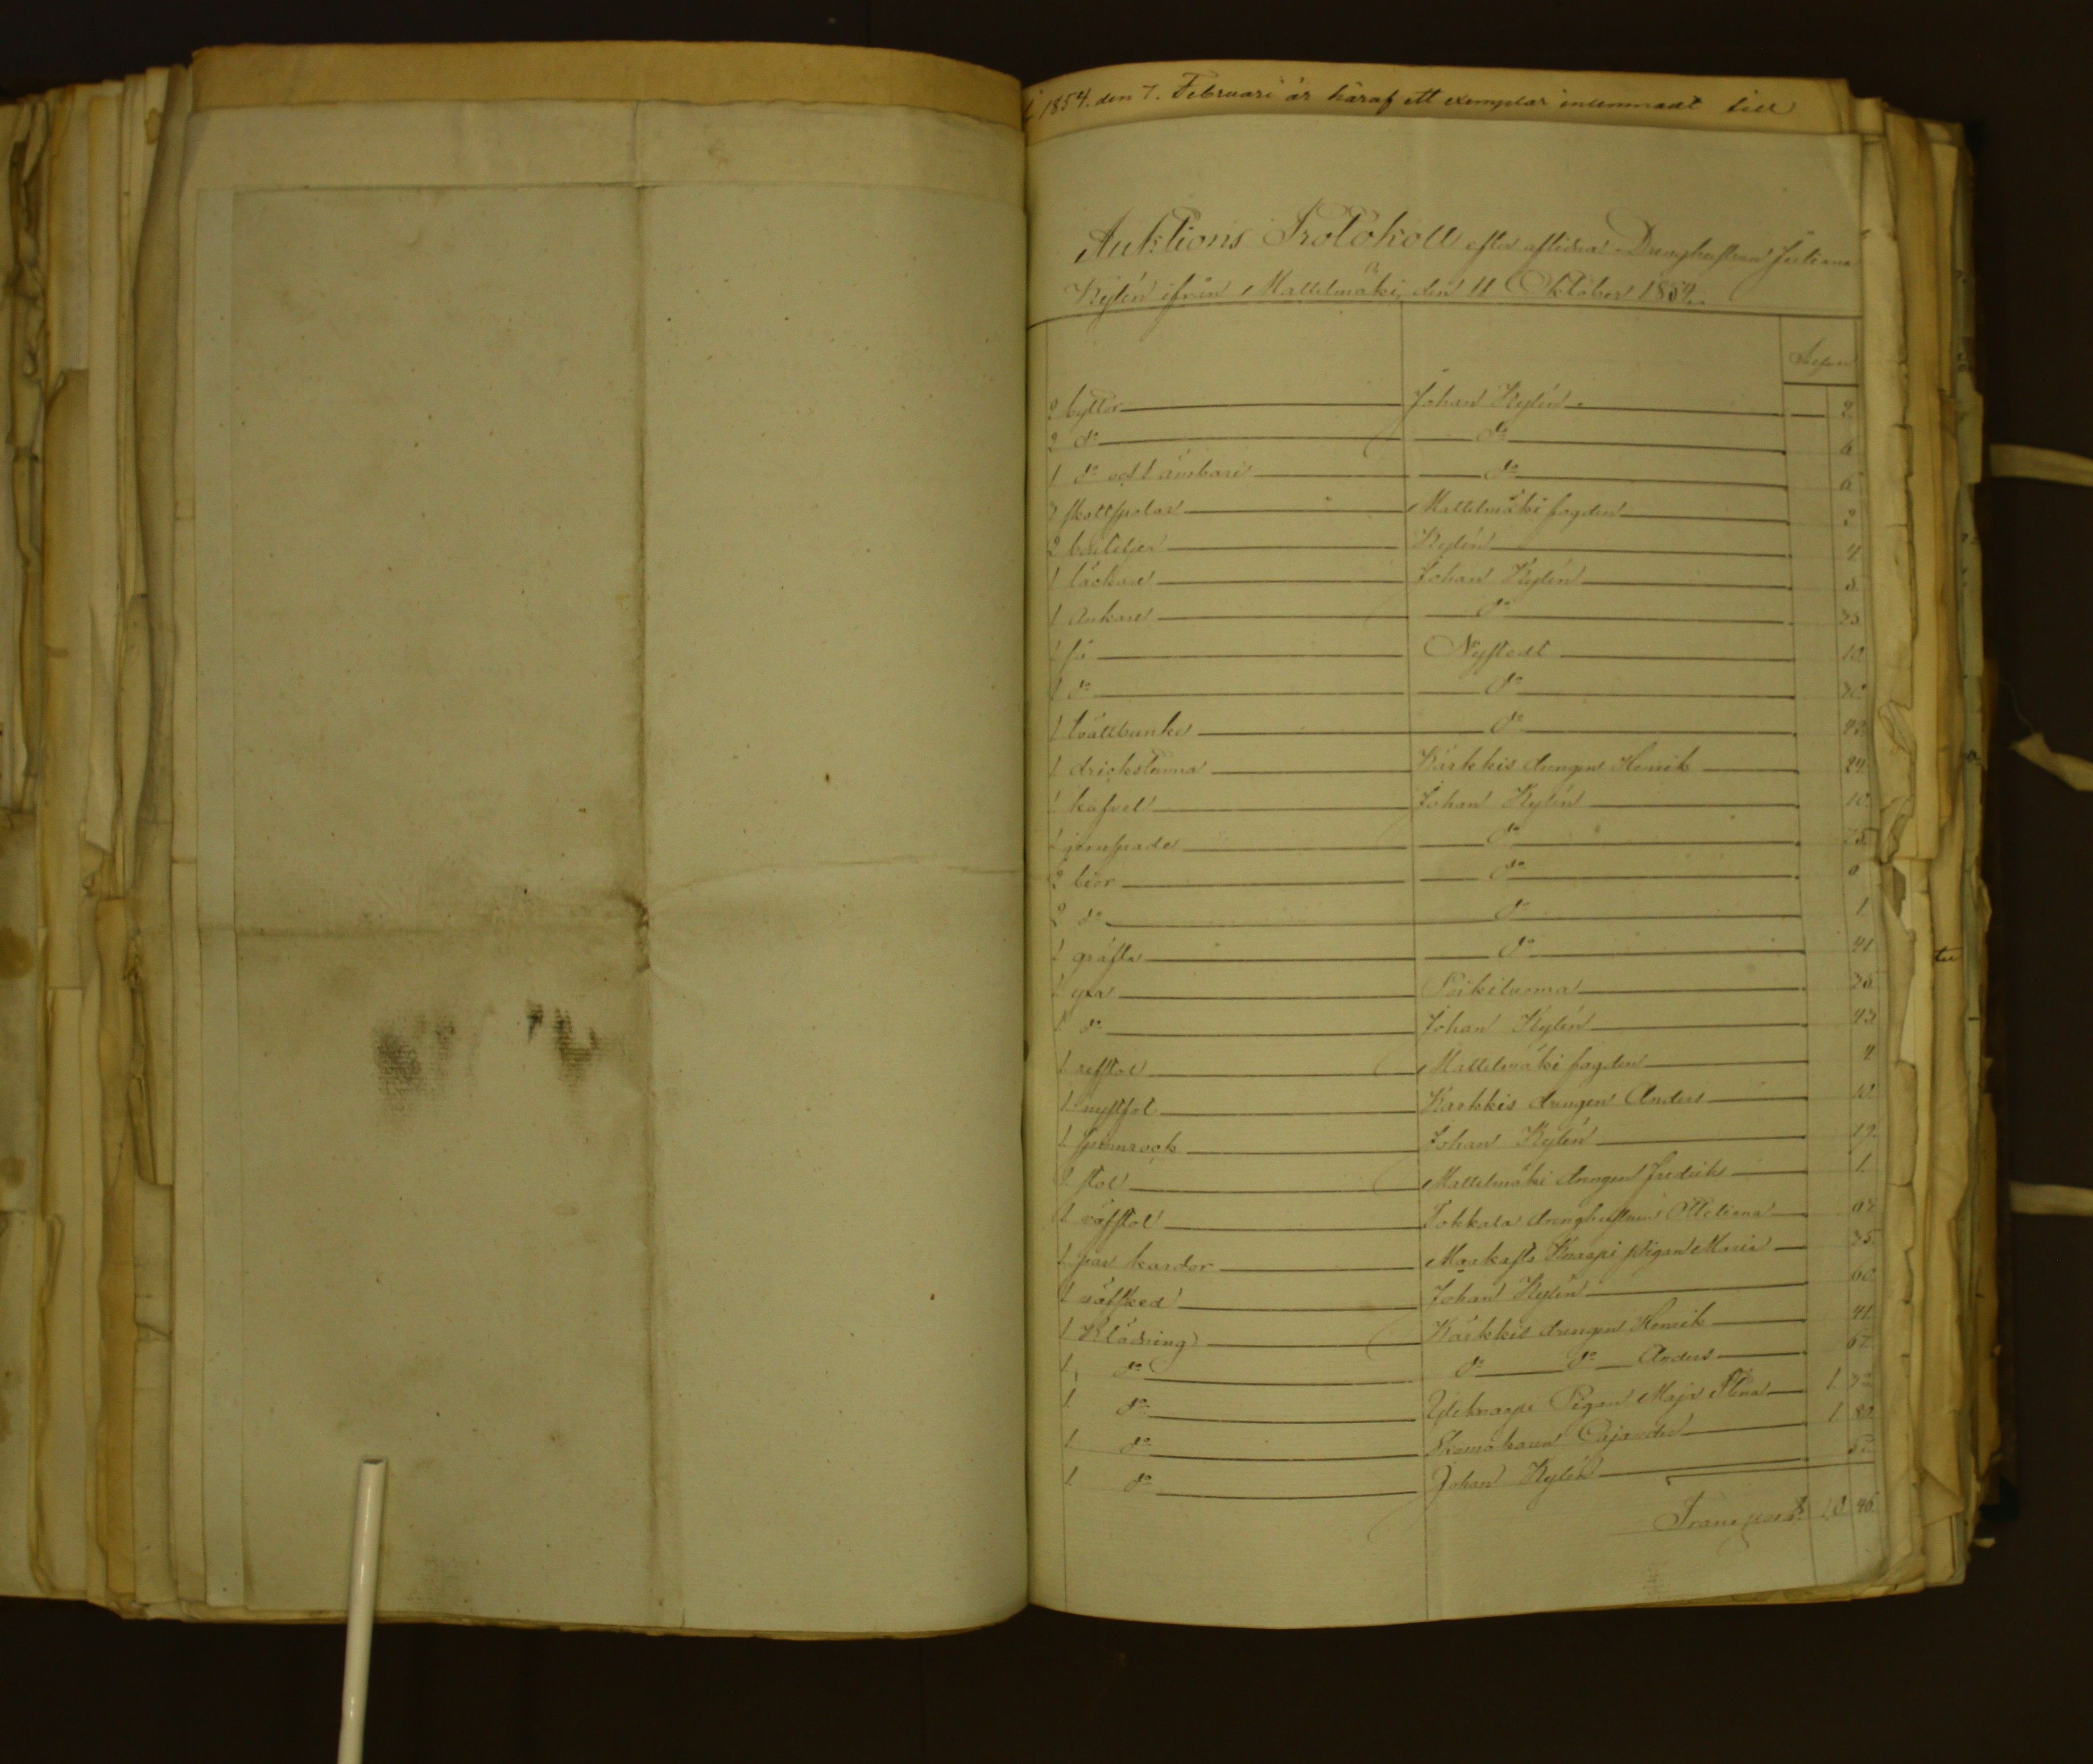 1854. den 7. Februari är häraf ett exemplar inlemnadt till
Auktions Protokoll efter aflidna Drenghustrun Juliana
Kylén ifrån Mattelmäki, den 11 Oktober 1854.
2 byttor Johan Kylén 2
2 do do 6
1 do och 1 ämbare do 6
2 skottspolar Mattelmäki fogden 2
2 bouteljer Kylén 4
1 Johan Kylén
1 Ankare do 25
1 så Nystedt 10
1 do do
1 tvättbunke do
1 dricks tunna Kärkkis drengen Henrik 24
1 Johan Kylén 10
1 jernspade do 25
2 liior do
2 do do 1
1 gräfta do 41
1 yxa Poikiluoma 25
1 do Johan Kylén 43
1 Mattelmäki fogden 4
1 nystfot Kärkkis drengen Anders
1 spinnrock Johan Kylén 19
2 stol Mattelmäki drengen Fredrik 1
1 väfstol Tokkala drenghustrun Ottiliana
1 par kardor Knaapi pigan Maria 35
1 väfsked Johan Kylén 60
1 Klädning Kärkkis drengen Henrik 41
1 do do do Anders
1 do Yliknaapi Pigan Maja Stina 1
1 do Skomakaren Cajander 1 80
1 do Johan Kylén
Transport 10 46